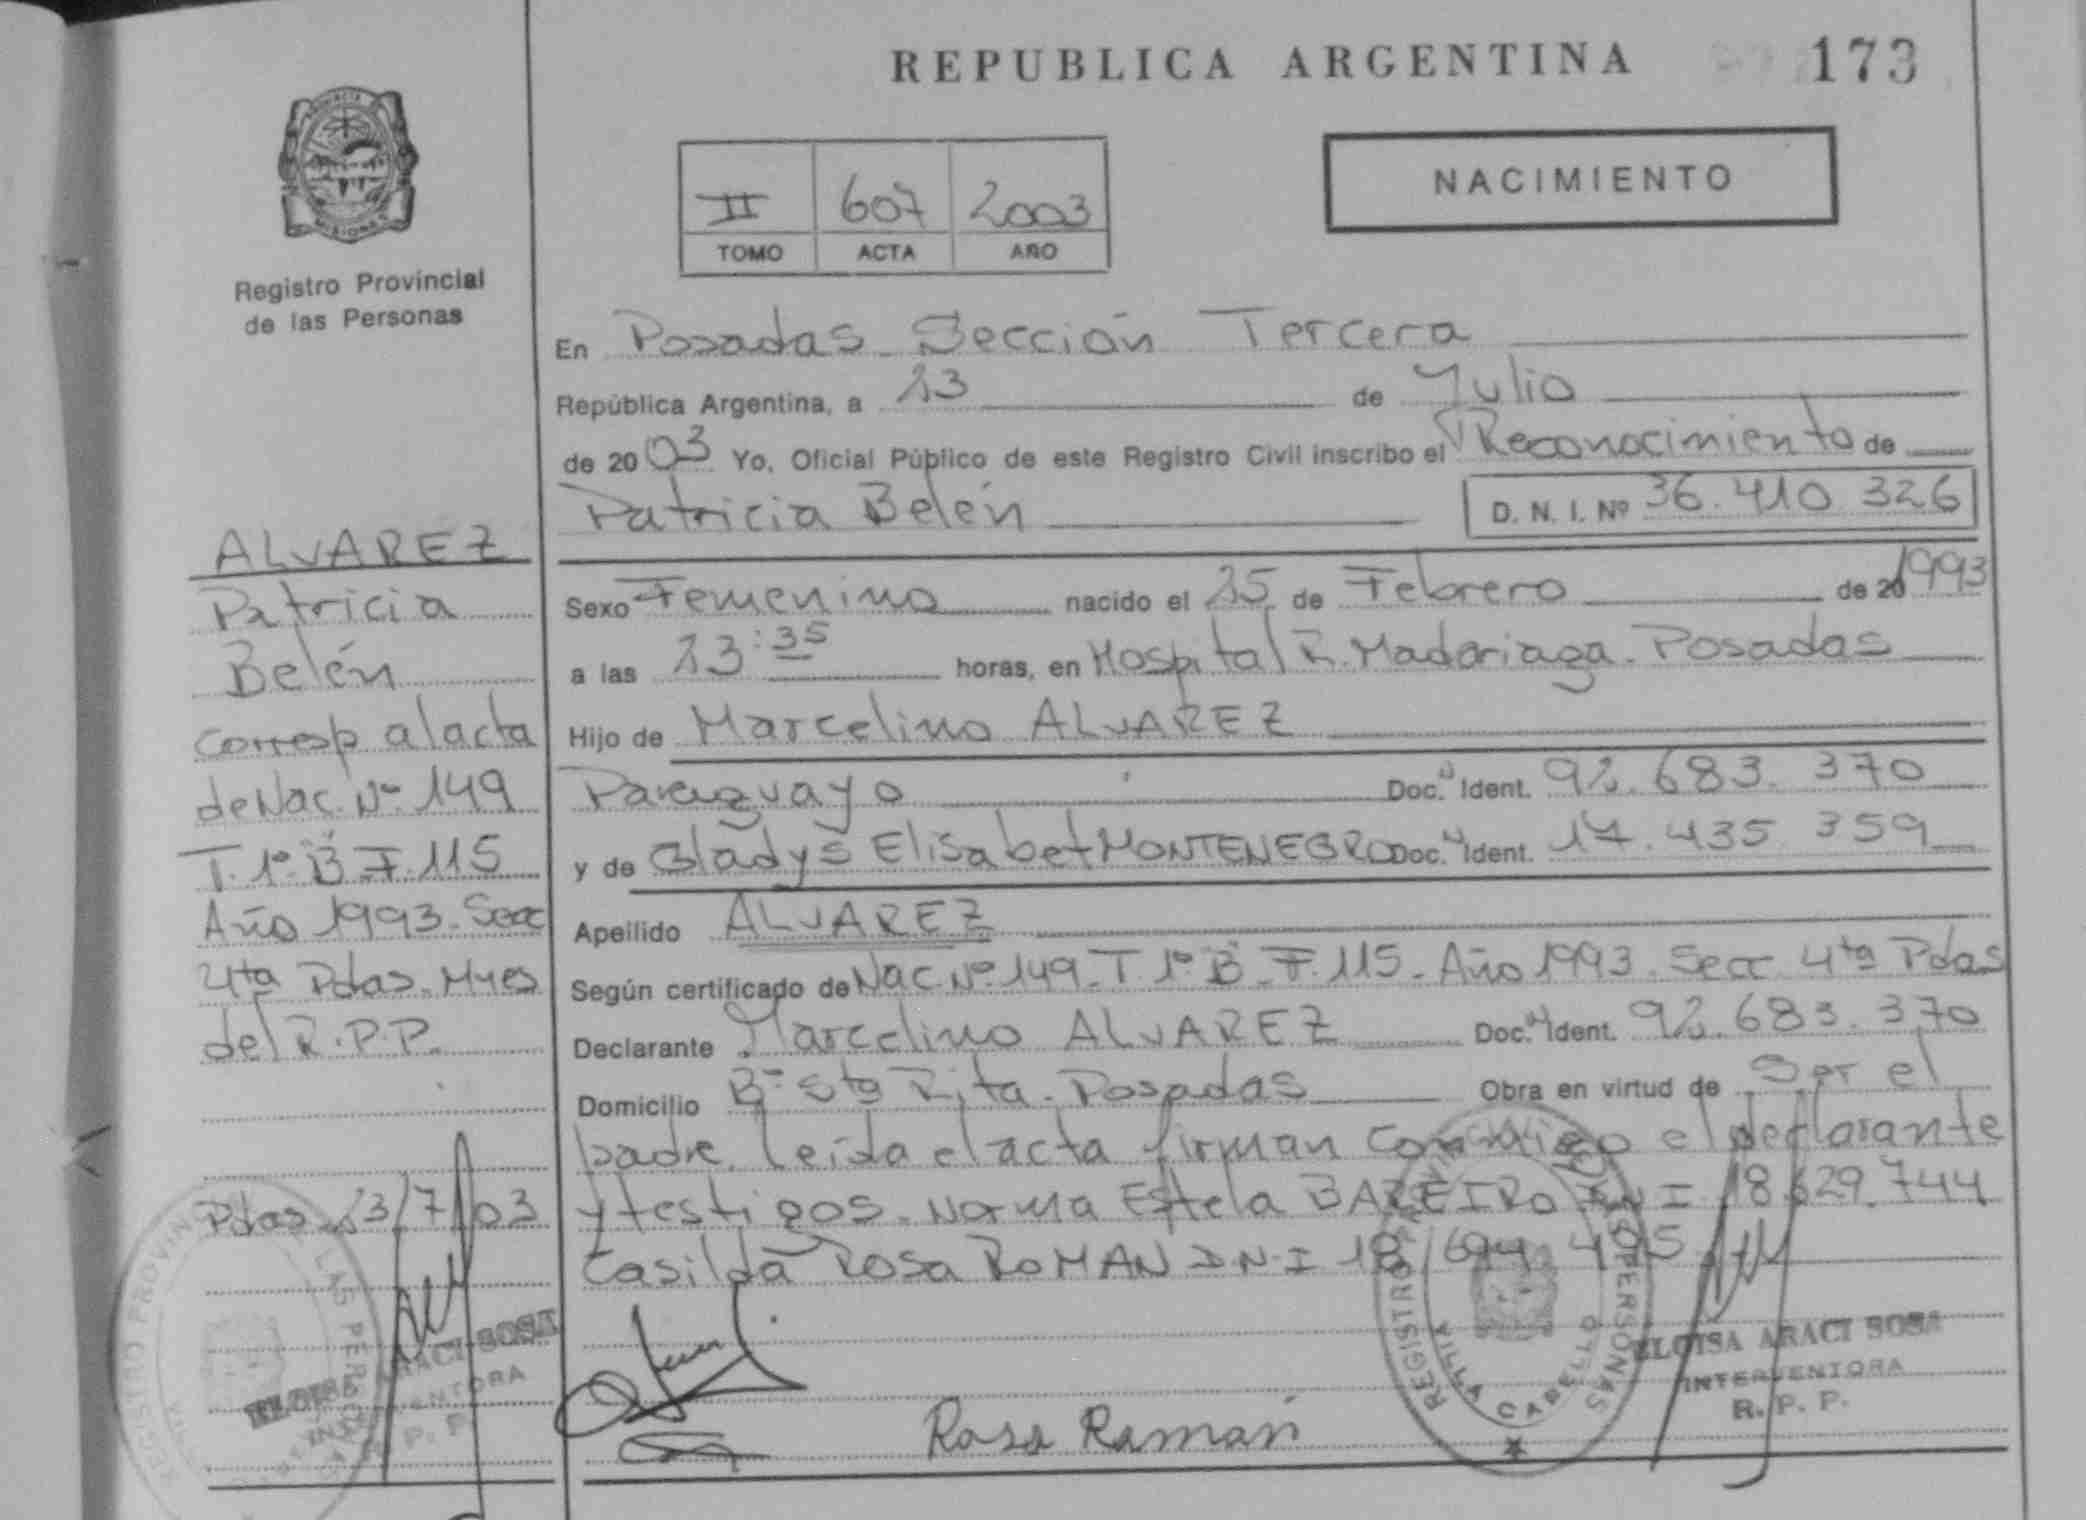 REPUBLICA ARGENTINA 173
Registro Provincial
de las Personas
II 607 2003
TOMO ACTA AÑO
NACIMIENTO
En Posadas Sección Tercera
República Argentina, a 23 de Julio
de 2003 Yo, Oficial Público de este Registro Civil inscribo el Reconocimiento de
Patricia Belén D. N. I. Nº 36.410.326
Sexo Femenino nacido el 25 de Febrero de 20 1993
a las 23:35 horas, en Hospital R. Madariaga. Posadas
Hijo de Marcelino ALVAREZ
Paraguayo Doc. Ident. 92.683.370
y de Gladys Elisabet MONTENEGRO Doc. Ident. 17.435 359
Apellido ALVAREZ
Según certificado de Nac Nº 149 T 1º B F.115. Año 1993. Secc 4ta Pdas
Declarante Marcelino ALVAREZ Doc. Ident. 92.683.370
Domicilio Bº Sta Rita. Posadas Obra en virtud de Ser el
padre. Leída el acta firman conmigo el declarante
y testigos. Norma Estela BAREIRO D.N.I 18.629.744
Casilda Rosa ROMAN D.N.I 18.694.495
Rosa Roman
ELOISA ARACI SOSA
INTERVENTORA
R. P. P.
ALVAREZ
Patricia
Belén
Corresp al acta
de Nac. Nº 149
T. 1º B F.115
Año 1993. Secc
4ta Pdas. Mnes
del R.P.P.
Pdas 23/7/03
ELOISA ARACI SOSA
INTERVENTORA
R. P. P.